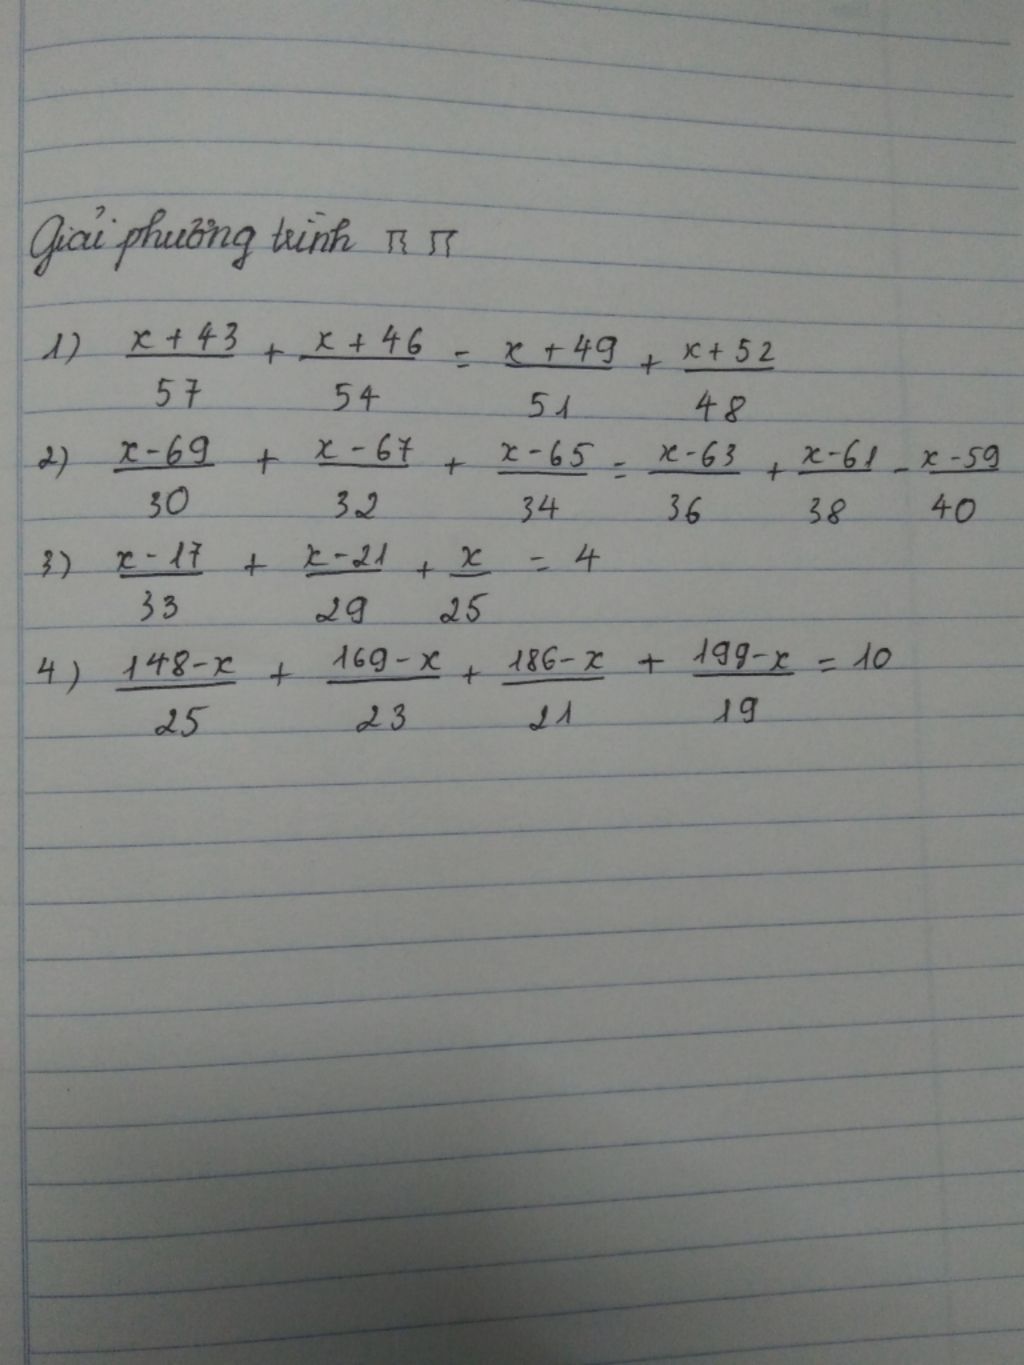 Giải phương trình ㅠㅠ
1) x+43/57 + x+46/54 = x+49/51 + x+52/48
2) x-69/30 + x-67/32 + x-65/34 = x-63/36 + x-61/38 - x-59/40
3) x-17/33 + x-21/29 + x/25 = 4
4) 148-x/25 + 169-x/23 + 186-x/21 + 199-x/19 = 10